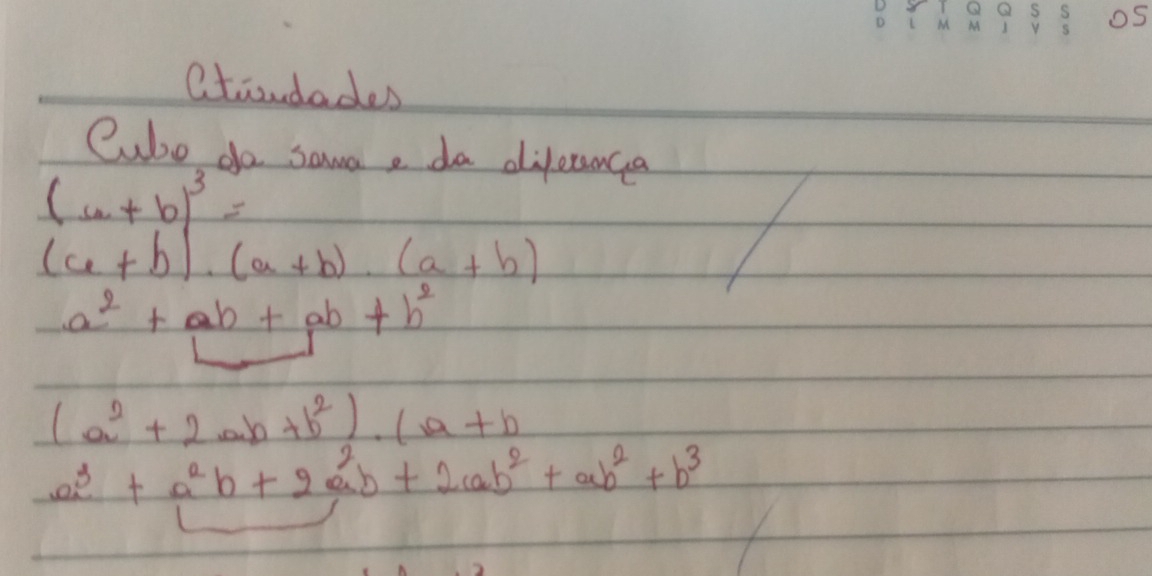 D S T Q Q S S 05
D L M M J V S
Atividades
Cubo da soma e da diferença
(a + b)³ =
(a + b) . (a + b) . (a + b)
a² + ab + ab + b²
(a² + 2ab + b²) . (a + b
a³ + a²b + 2a²b + 2ab² + ab² + b³